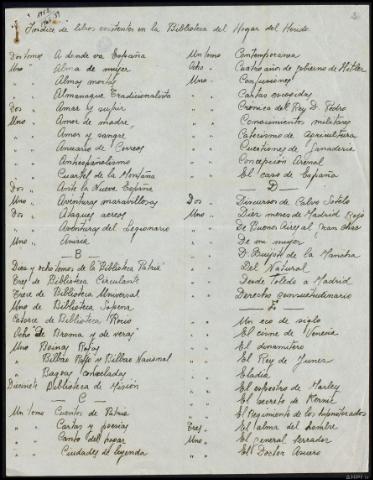 Indice de libros existentes en la Biblioteca del Hogar del Herido
Dos tomos A donde va España
Uno " Alma de mujer
" " Almas muertas
" " Almanaque Tradicionalista
Dos " Amar y sufrir
Uno " Amor de madre
" " Amor y sangre
" " Anuario de Correos
" " Antiespañolismo
" " Cuartel de la Montaña
Dos " Ante la Nueva España
Uno " Aventuras maravillosas
Dos " Ataques aereos
" " Aventuras del Legionario
Uno "
B
Diez y ocho tomos de la Biblioteca Patria
Tres de Biblioteca Circulante
Trece de Biblioteca Universal
Uno de Biblioteca Sopena
Catorce de Biblioteca Rocio
Ocho de Broma y de veras
Uno Boinas Rojas
" Bilbao Rojo y Bilbao Nacional
" Bagou
Biblioteca de Misión
C
Un tomo Cuentos de Patria
" " Cartas y poesias
" " Canto del hogar
" " Ciudades de leyenda
Un tomo Contemporanea
Ocho " Cuatro año de gobierno de Hitler
Uno " Confesiones
" " Cartas escogidas
" " Cronica del Rey D. Pedro
" " Conocimientos militares
" " Catecismo de Agricultura
" " Cuestiones de Ganaderia
" " Concepción Arenal
" " El caso de España
D
Dos " Discursos de Calvo Sotelo
Uno " Diez meses de Madrid Rojo
" " De Buenos Aires al
" " De mi mujer
" " D. Quijote de la Mancha
" " Del Natural
" " Desde Toledo a Madrid
" " Derecho consuetudinario
E
" " Un eco de siglo
" " El cisne de Venecia
" " El dinamitero
" " El Rey de
" " Eladia
" " El espectro de Marley
" " El secreto de
" " El Regimiento de los hipnotizados
Tres " El alma del hombre
Uno " El general
" " El Doctor